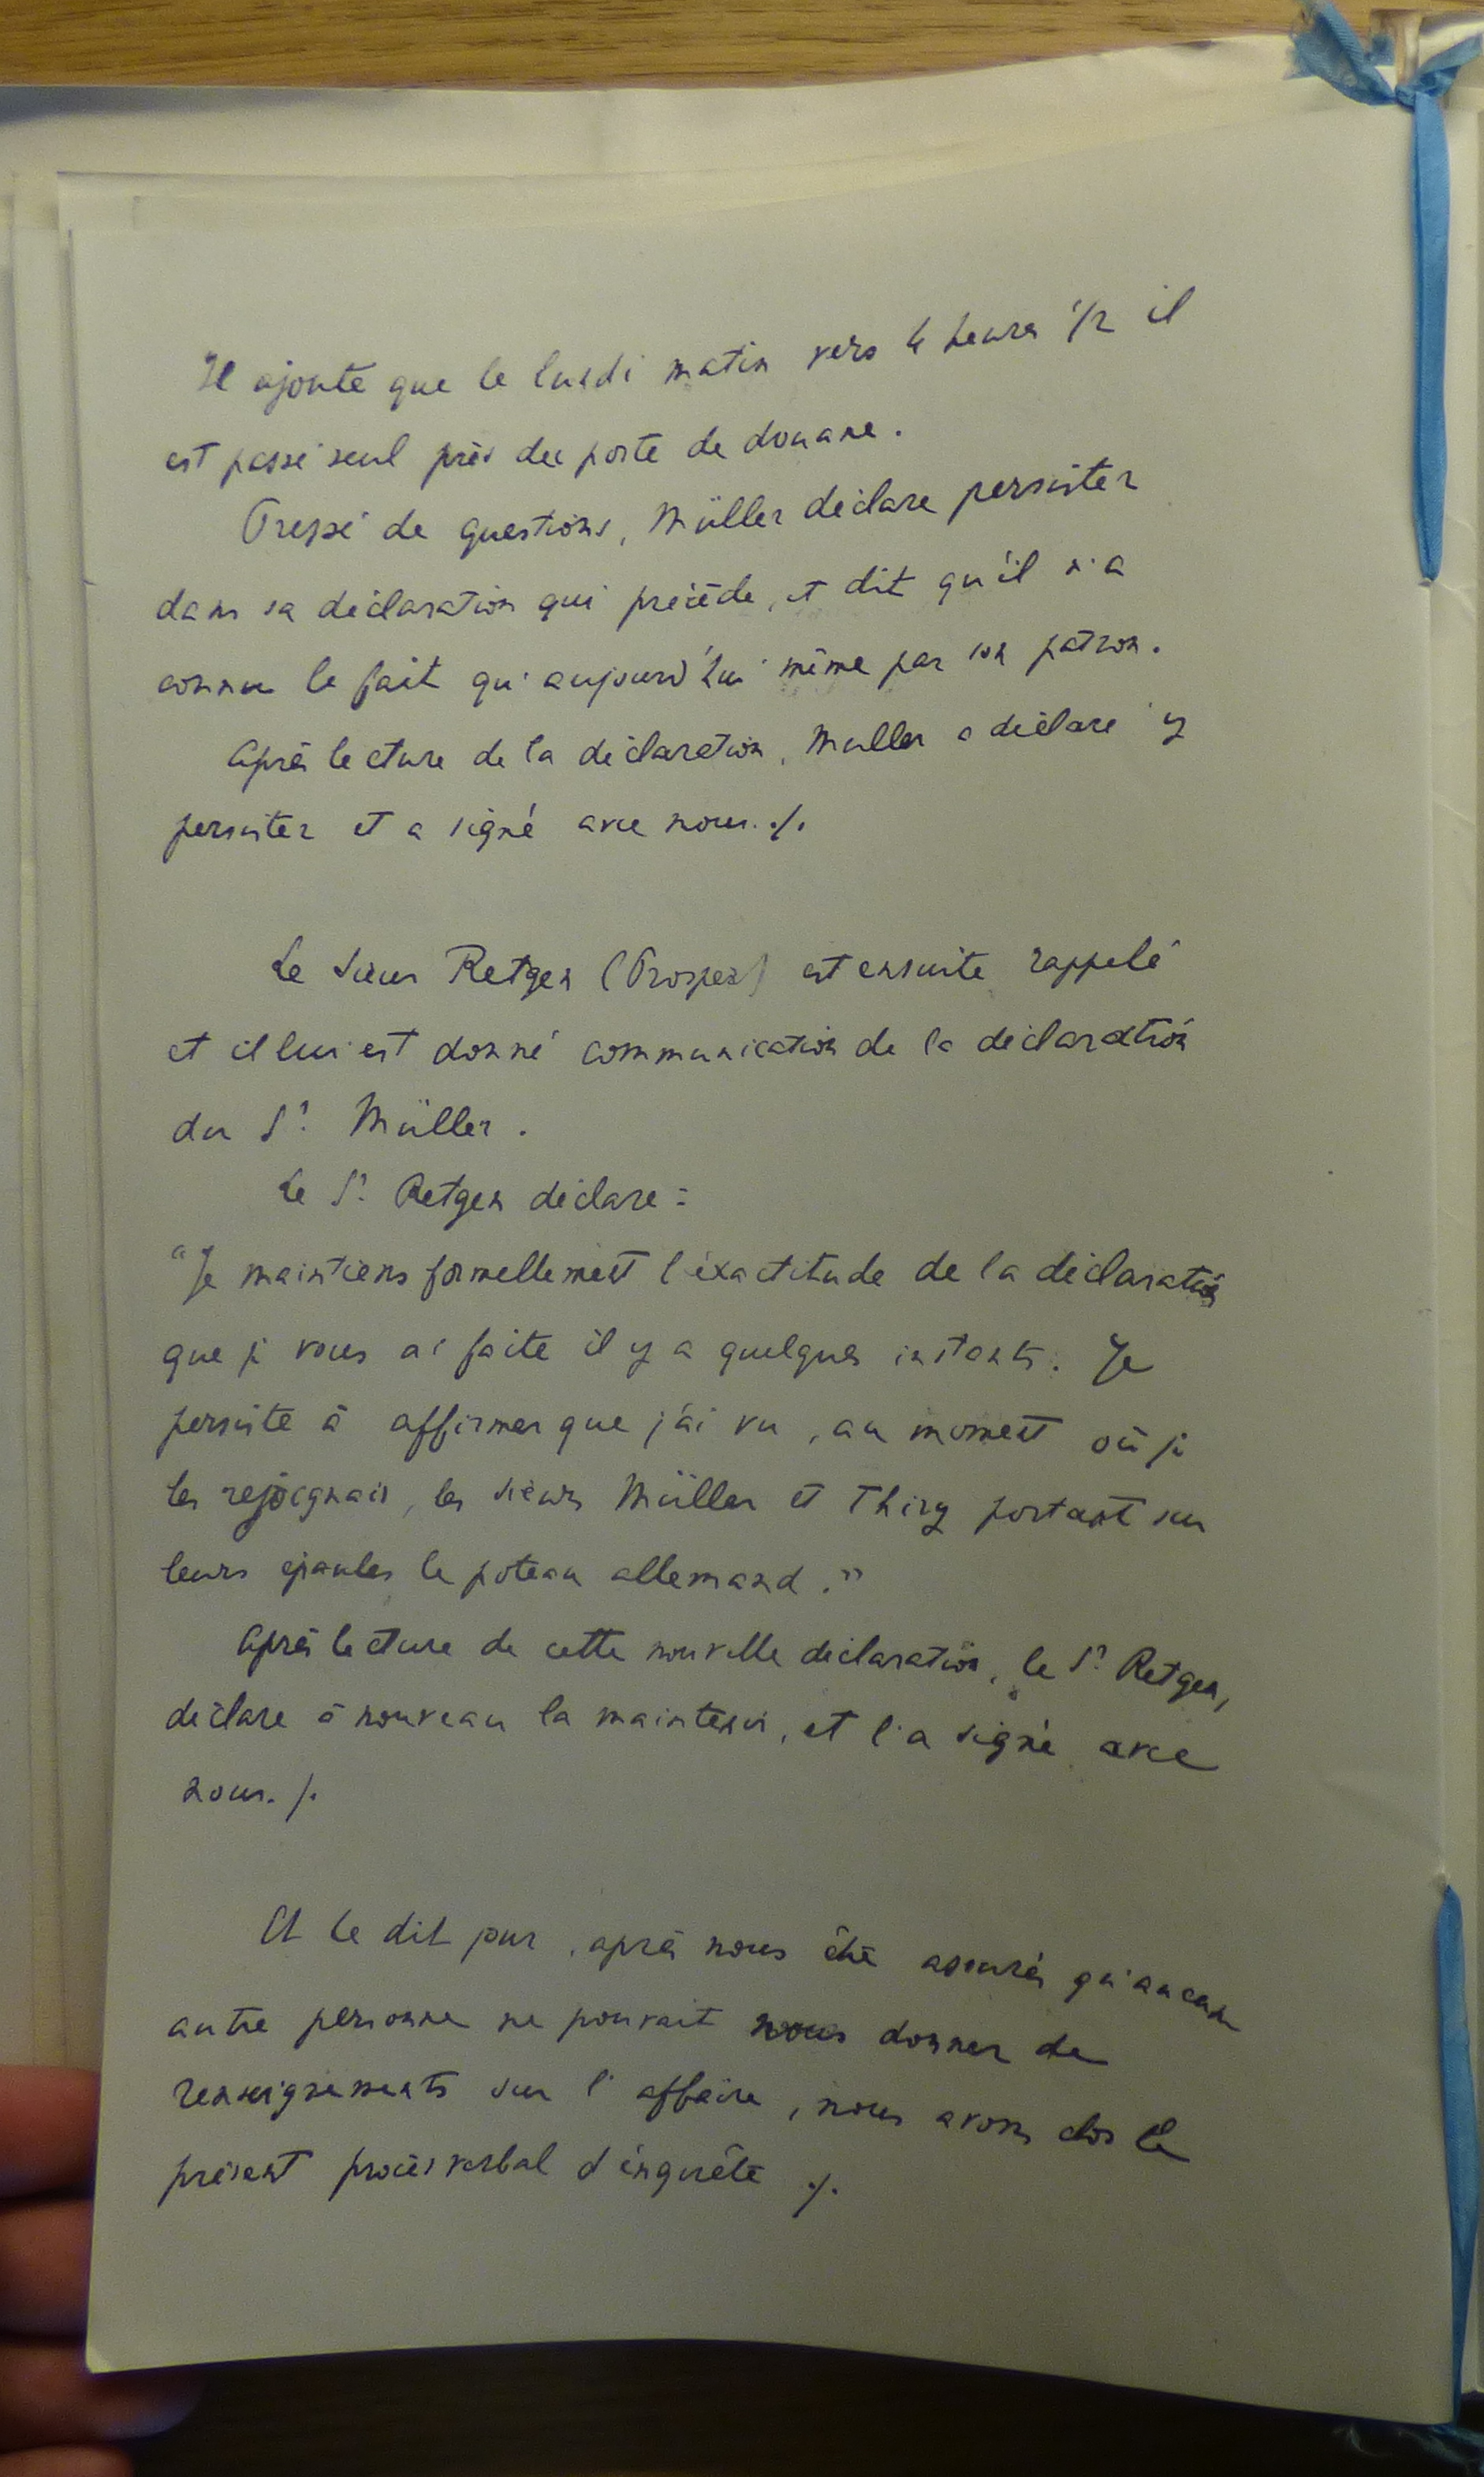 Il ajoute que le lundi matin vers 4 heures 1/2 il
est passé seul près du poste de douane.
Pressé de questions, Müller déclare persister
dans sa déclaration qui précède, et dit qu'il n'a
connu le fait qu'aujourd'hui même par son patron.
Après lecture de la déclaration, Muller a déclaré y
persister et a signé avec nous. ./.
Le sieur Retgen (Prosper) est ensuite rappelé
et il lui est donné communication de la déclaration
du Sr. Müller.
Le Sr. Retgen déclare :
"Je maintiens formellement l'éxactitude de la déclaration
que je vous ai faite il y a quelques instants. Je
persiste à affirmer que j'ai vu, au moment où je
les rejoignais, les sieurs Müller et Thiry portant sur
leurs épaules le poteau allemand."
Après lecture de cette nouvelle déclaration, le Sr. Retgen,
déclare à nouveau la maintenir, et l'a signé avec
nous. /.
Et le dit jour, après nous être assurés qu'aucune
autre personne ne pouvait nous donner de
renseignements sur l'affaire, nous avons clos le
présent procès verbal d'enquête ./.